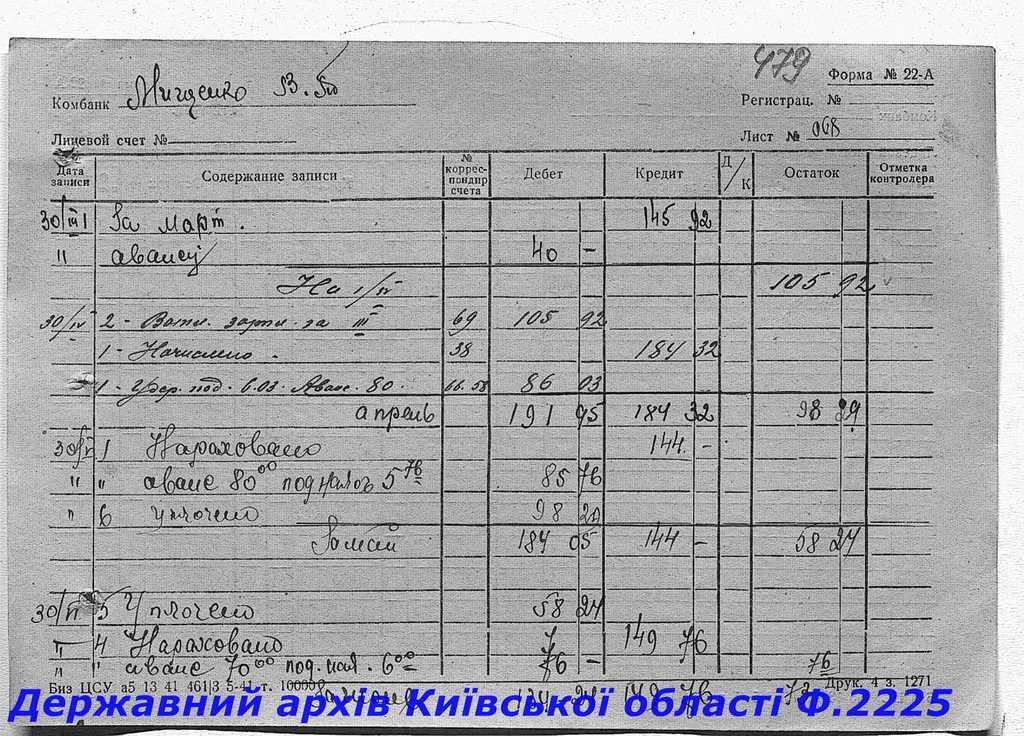 479 Форма № 22-А
Комбанк Мищенко В.
Регистрац. №
Лицевой счет №
Лист № 068
Дата записи Содержание записи № коррес- пондир счета Дебет Кредит Д/К Остаток Отметка контролера
30/III 1 За март. 145 92
" авансу 40 –
На 1/IV 105 92
30/IV 2 - Вопл. зарпл. за III 69 105 92
1 - Начислено. 38 184 32
1 - Удер. под. 6.03. Аванс. 80. 66.58 86 03
апрель 191 95 184 32 98 29
30/V 1 Нараховано 144 –
" " аванс 80 00 под налог 5 76 85 76
" 6 уплочено 98 29
За май 184 05 144 – 58 24
30/VI 5 Уплочено 58 24
" 4 Нараховано 149 76
" " аванс 70 00 под. нал. 6 00 76 –
Биз ЦСУ з5 13 41 461|3 5-41 т. 100000 Друк. 4 з. 1271
134 24 149 76 73 76
Державний архів Київської області Ф.2225